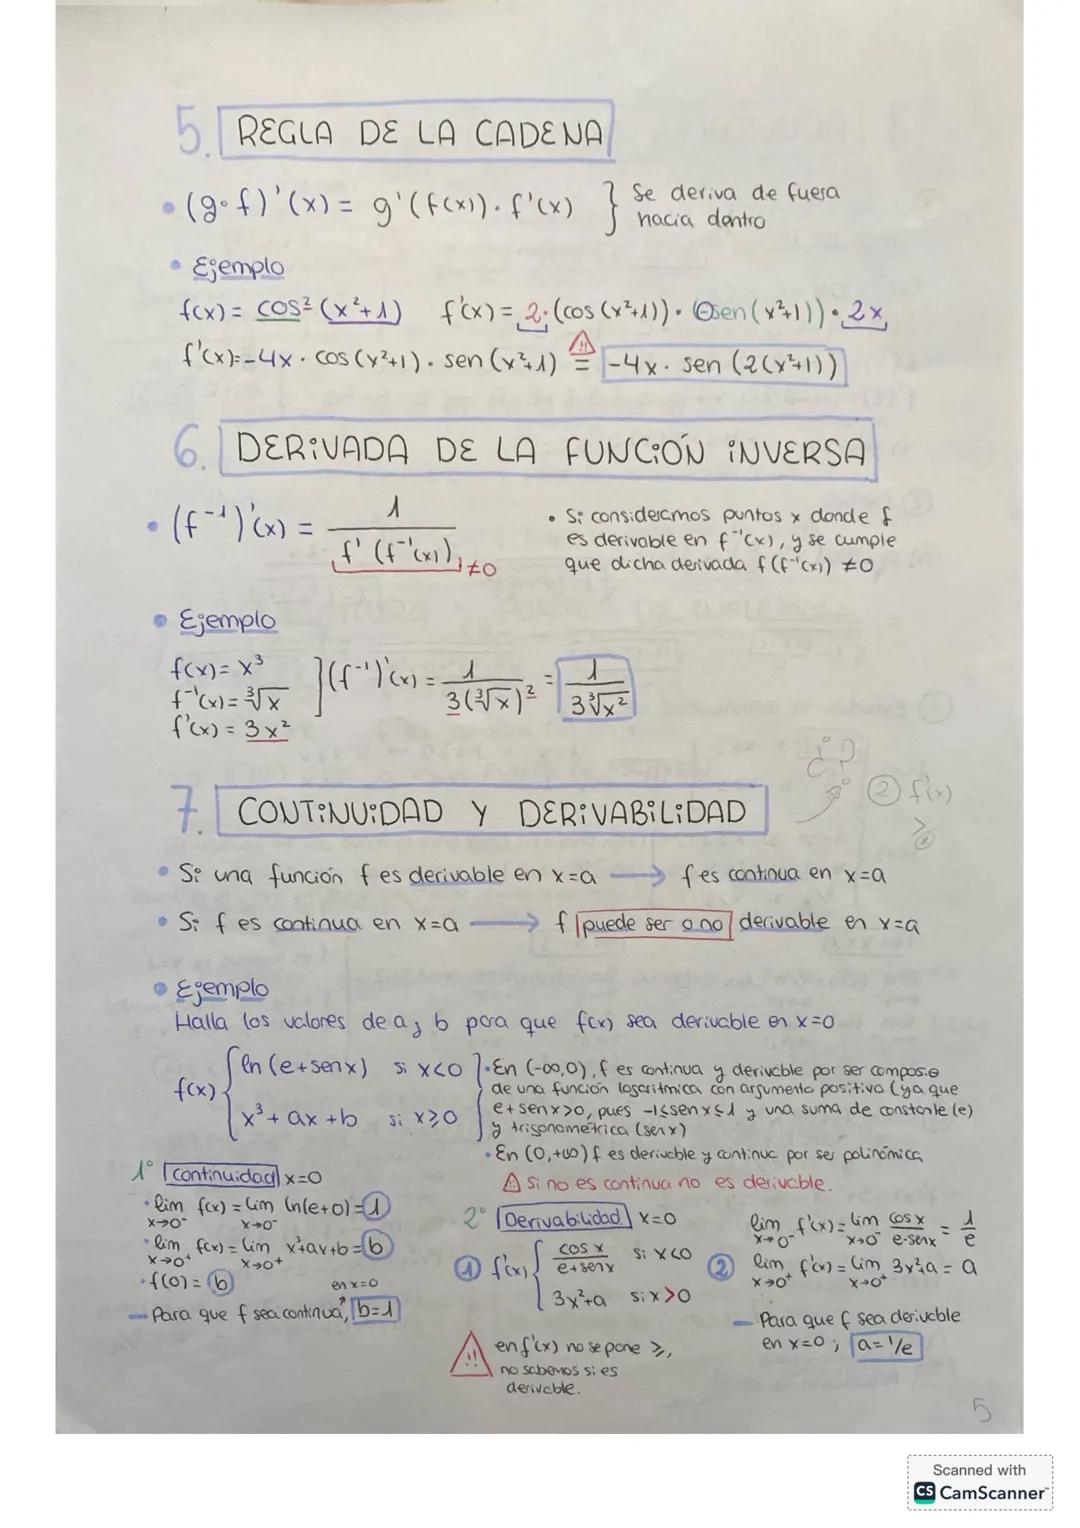 5. REGLA DE LA CADENA
• (g∘f)'(x) = g'(f(x)). f'(x) } Se deriva de fuera
hacia dentro
• Ejemplo
f(x) = cos² (x²+1) f'(x) = 2·(cos (x²+1)) · (-sen (x²+1)) · 2x
f'(x)=-4x · cos (x²+1) · sen (x²+1) = -4x · sen (2(x²+1))
6. DERIVADA DE LA FUNCIÓN INVERSA
• (f⁻¹)'(x) = 1 / f' (f⁻¹(x)) ≠0
• Si consideramos puntos x donde f
es derivable en f⁻¹(x), y se cumple
que dicha derivada f (f⁻¹(x)) ≠0
• Ejemplo
f(x) = x³
f⁻¹(x) = ∛x ] (f⁻¹)'(x) = 1 / 3(∛x)² = 1 / 3∛x²
f'(x) = 3x²
¿?
② f'(x)
≥
7. CONTINUIDAD Y DERIVABILIDAD
• Si una función f es derivable en x=a → f es continua en x=a
• Si f es continua en x=a → f puede ser o no derivable en x=a
• Ejemplo
Halla los valores de a y b para que f(x) sea derivable en x=0
f(x) { ln (e+senx) si x<0
x³ + ax + b si x≥0
• En (-∞,0), f es continua y derivable por ser compos.e
de una función logarítmica con argumento positivo (ya que
e+senx>0, pues -1≤senx≤1 y una suma de constante (e)
y trigonométrica (senx)
• En (0,+∞) f es derivable y continua por ser polinómica
⚠ Si no es continua no es derivable.
1° Continuidad x=0
• lim x→0⁻ f(x) = lim x→0⁻ ln(e+0) = 1
• lim x→0⁺ f(x) = lim x→0⁺ x³+ax+b = b
• f(0) = b
en x=0
— Para que f sea continua, b=1
2° Derivabilidad x=0
① f'(x) { cos x / e+senx si x<0
3x²+a si x>0
⚠!! en f'(x) no se pone ≥,
no sabemos si es
derivable.
② lim x→0⁻ f'(x) = lim x→0⁻ cos x / e-senx = 1/e
lim x→0⁺ f'(x) = lim x→0⁺ 3x²+a = a
— Para que f sea derivable
en x=0; a=1/e
5
Scanned with
CS CamScanner™